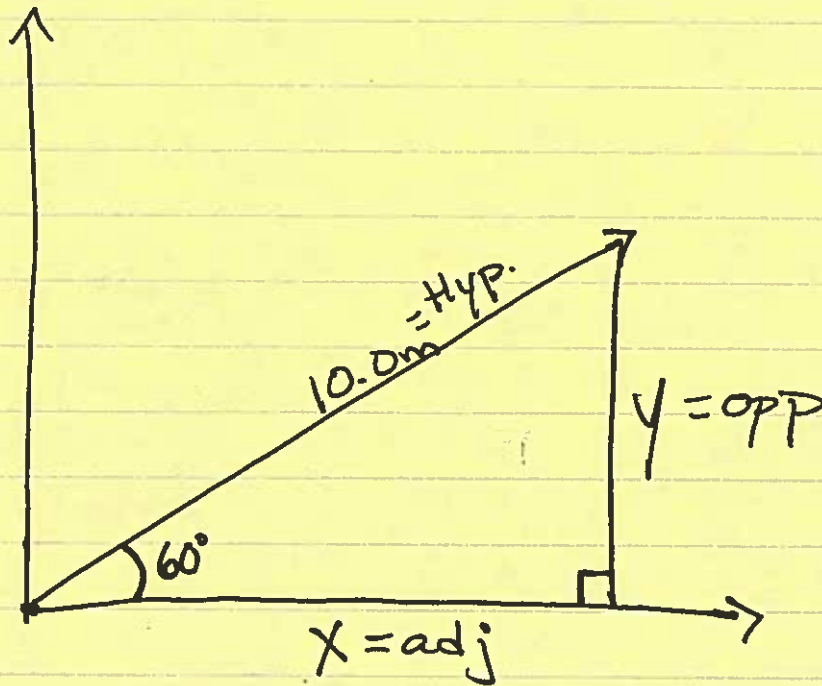 10.0m = Hyp.
y = opp
60°
x = adj